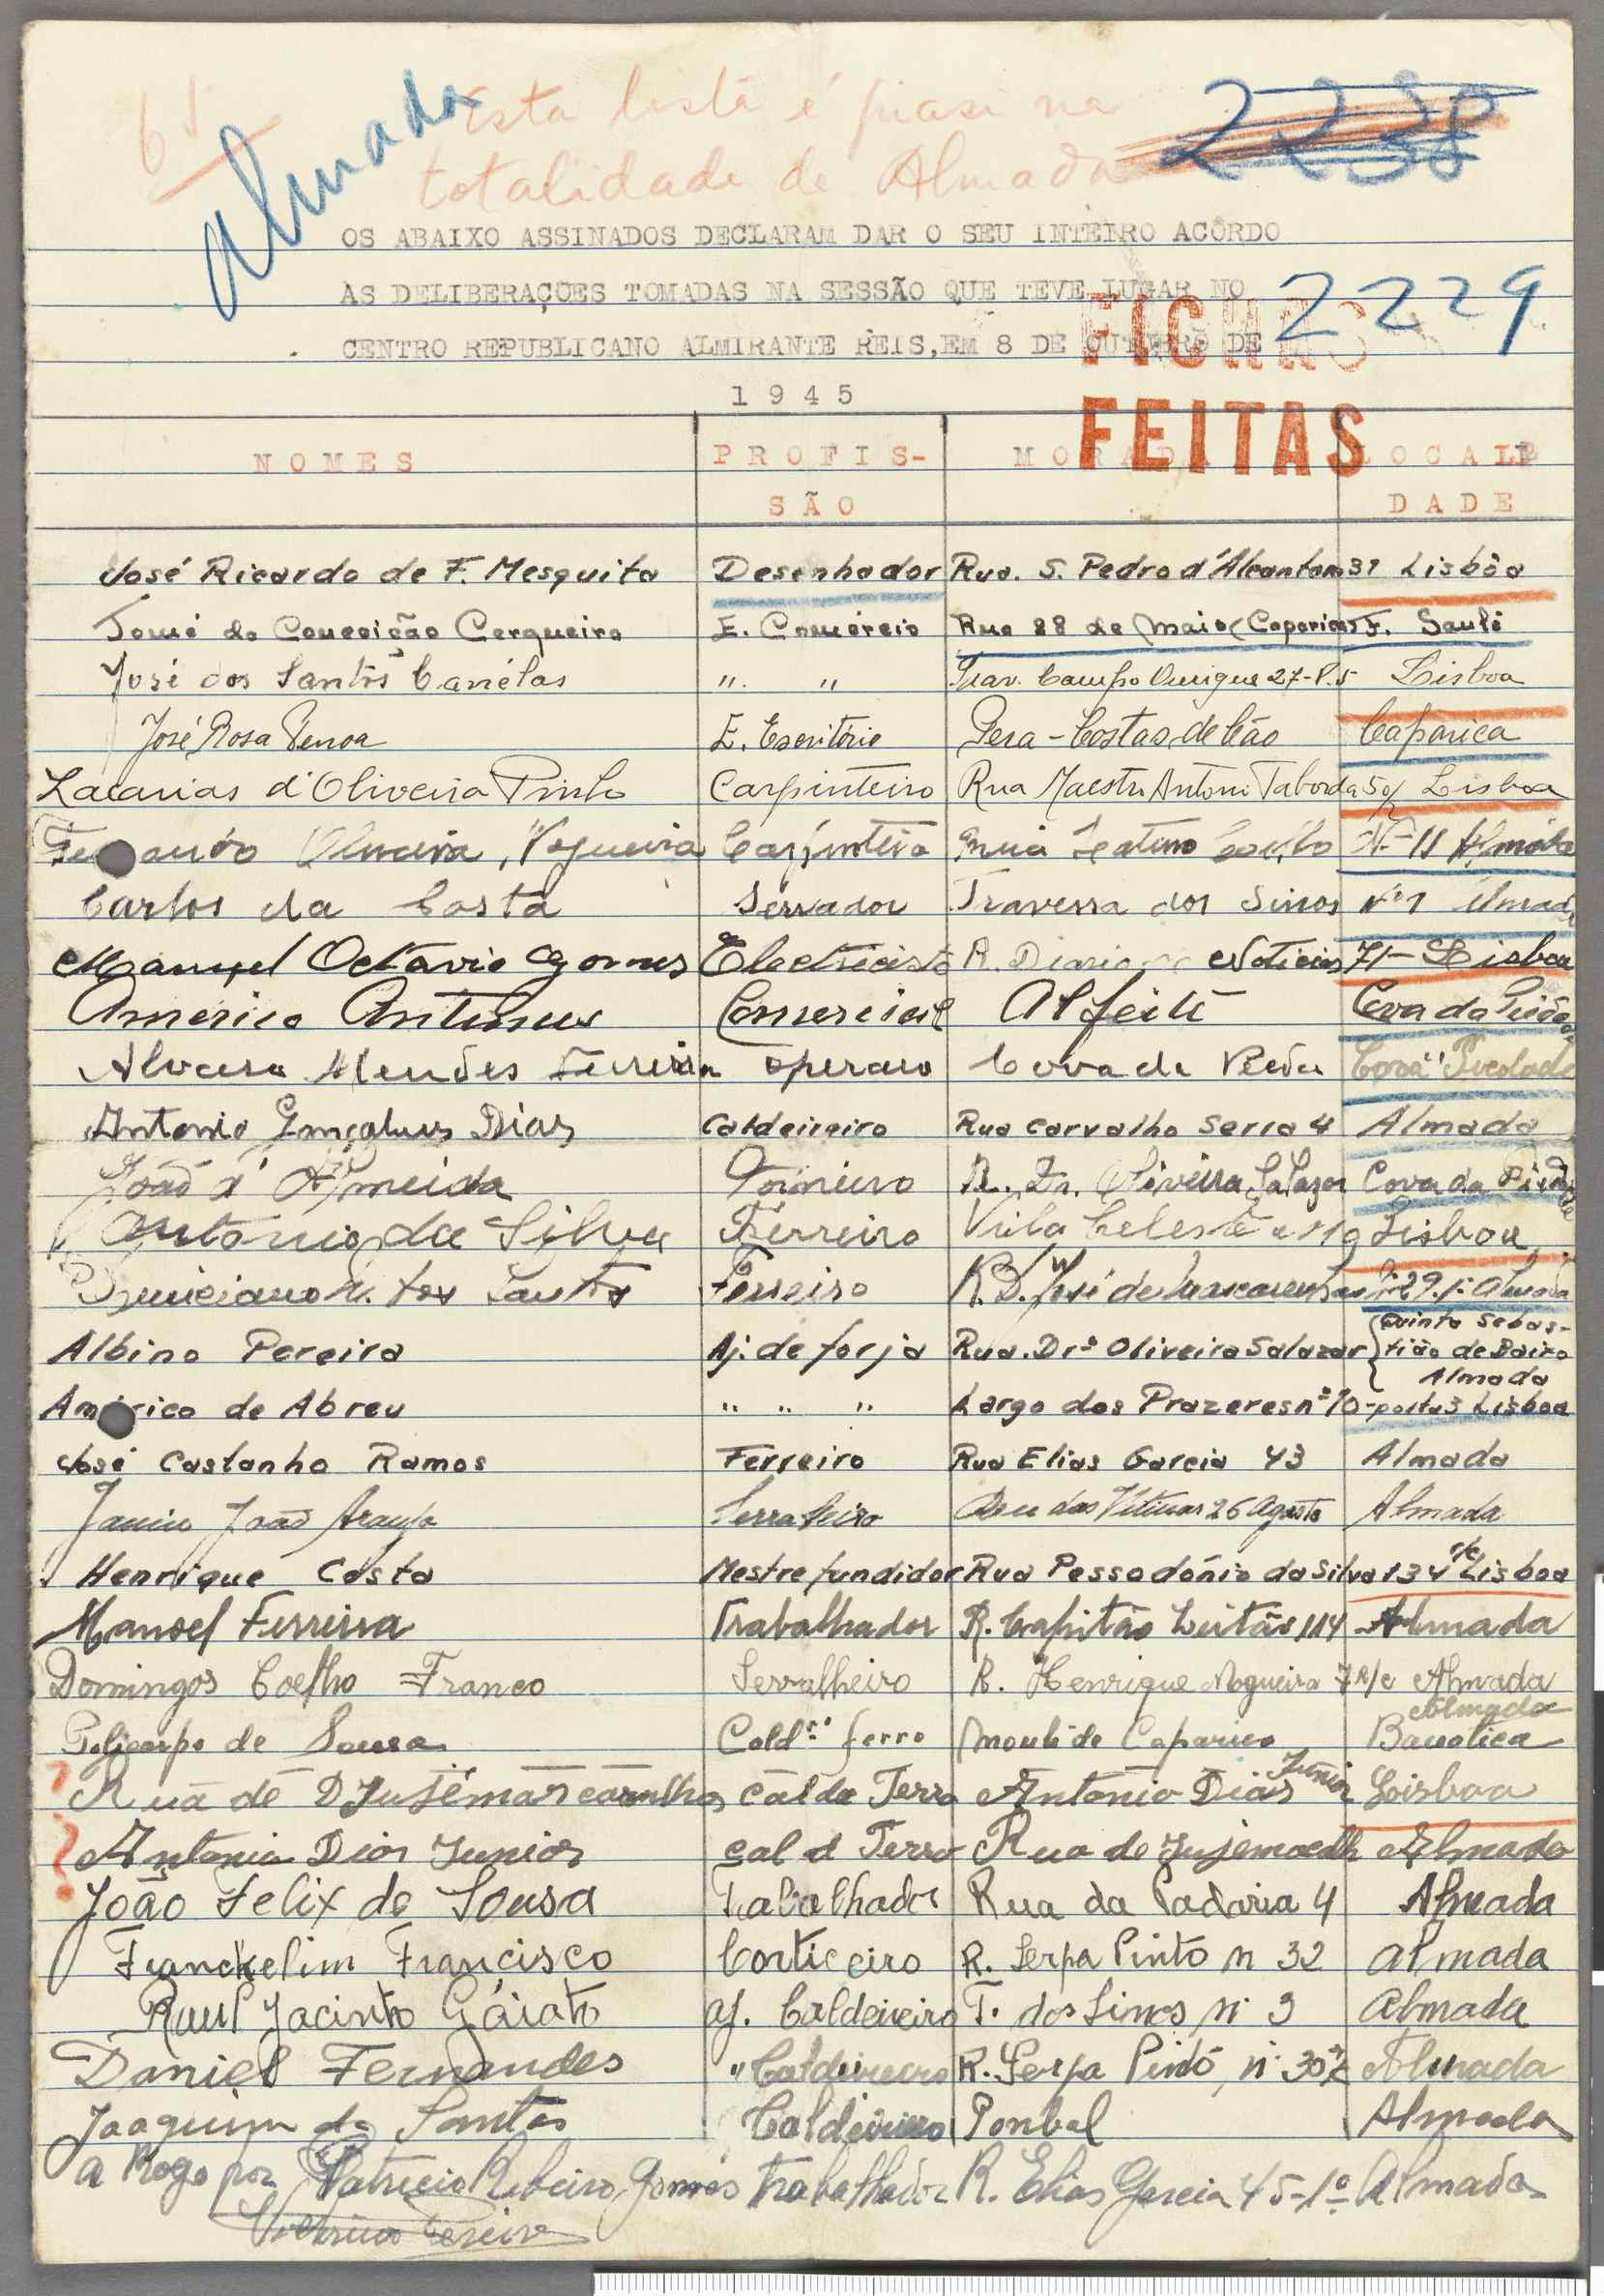 61
Almada
Esta lista é quasi na
totalidade de Almada
2238
OS ABAIXO ASSINADOS DECLARAM DAR O SEU INTEIRO ACÔRDO
ÀS DELIBERAÇÕES TOMADAS NA SESSÃO QUE TEVE LUGAR NO
CENTRO REPUBLICANO ALMIRANTE REIS, EM 8 DE OUTUBRO DE
1 9 4 5
2229
FICHAS
FEITAS
NOMES PROFIS- MORADA LOCALI-
SÃO DADE
José Ricardo de F. Mesquita Desenhador Rua. S. Pedro d'Alcantara 31 Lisbôa
Tomé da Conceição Cerqueira E. Comércio Rua 28 de Maio (Caparica)
José dos Santos Canélas " " Trav. Campo Ourique 27-P.5 Lisboa
José Rosa E. Escritório Pera - Costas de Cão Caparica
Zacarias d'Oliveira Pinto Carpinteiro Rua Maestro Antonio Taborda 50 Lisboa
Oliveira Nogueira Carpinteiro Rua Latino Coelho Nº 11 Almada
Carlos da Costa Serrador Travessa dos Sinos nº 1 Almada
Manuel Octavio Gomes Electricista R. Diario de Noticias 71 - Lisboa
Americo Antunes Comercial Alfeite Cova da Piedade
Alvaro Mendes Ferreira Operaro Cova da
Antonio Gonçalves Dias Caldeireiro Rua Carvalho Serra 4 Almada
João d'Almeida Torneiro R. Dr. Oliveira Salazar Cova da Piedade
Antonio da Silva Ferreiro Vila Celeste nº 19 Lisboa
dos Santos Ferreiro R. D. José de Mascarenhas nº 29.1º Almada
Albino Pereira Aj. de forja Rua. Drº Oliveira Salazar { Quinta Sebas-
tião de Baixo
Almada
Américo de Abreu " " " Largo dos Prazeres nº 10 - porta 3 Lisboa
José Castanho Ramos Ferreiro Rua Elias Garcia 43 Almada
João Araujo Serralheiro Rua das Vitimas 26 Agosto Almada
Henrique Costa Mestre fundidor Rua Possodónio da Silva 134 r/c Lisboa
Manoel Ferreira Trabalhador R. Capitão Leitão 114 Almada
Domingos Coelho Franco Serralheiro R. Henrique Nogueira 7 R/c Almada
Almada
Policarpo de Sousa Cald.º ferro Monte de Caparica Banatica
? Rua de D Jusémascarnlhas calde Ferro Antonio Dias Junior Lisboa
? Antonio Dias Junior cal d Ferro Rua de Almada
João Felix de Sousa Trabalhador Rua da Padaria 4 Almada
Franckelim Francisco Corticeiro R. Serpa Pinto n 32 Almada
Raul Jacinto Gáiato aj. Caldeireiro T. dos Sinos nº 3 Almada
Daniel Fernandes " Caldeireiro R. Serpa Pinto, nº 30 Almada
Joaquim dos Santos Caldeireiro Ponbal Almada
A Rogo por Patricio Ribeiro Gomes trabalhador R. Elias Garcia 45-1º Almada
Pereira